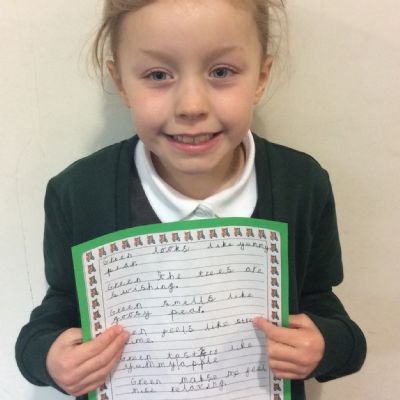 Green looks like yummy
pear.
Green the trees are
swishing.
Green smells like
gooey pear.
feels like
Green tasters like
yummy apple
Green makse me feel
like relaxing.